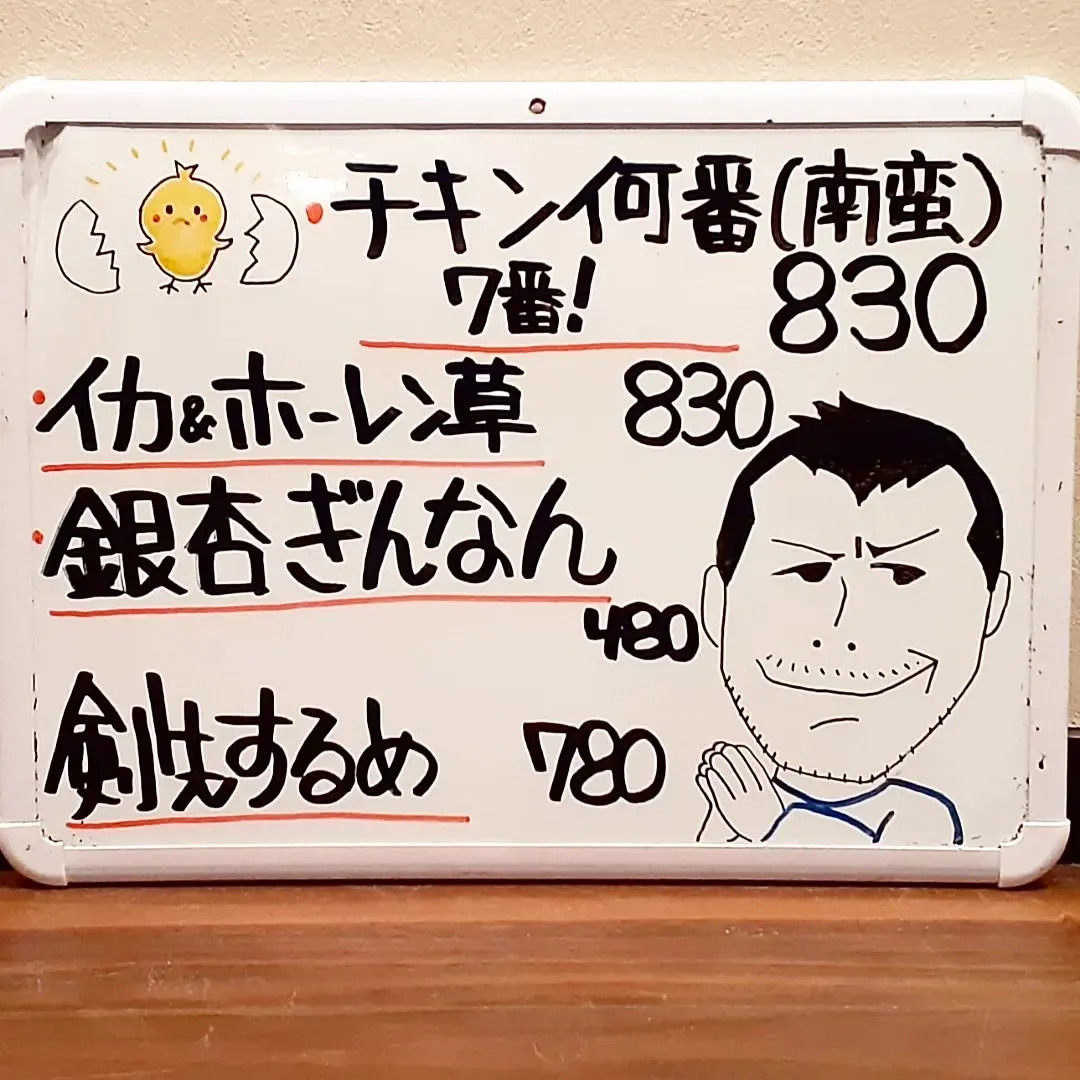 チキン何番(南蛮)
7番! 830
イカ&ホーレン草 830
銀杏ぎんなん
480
剣先するめ 780